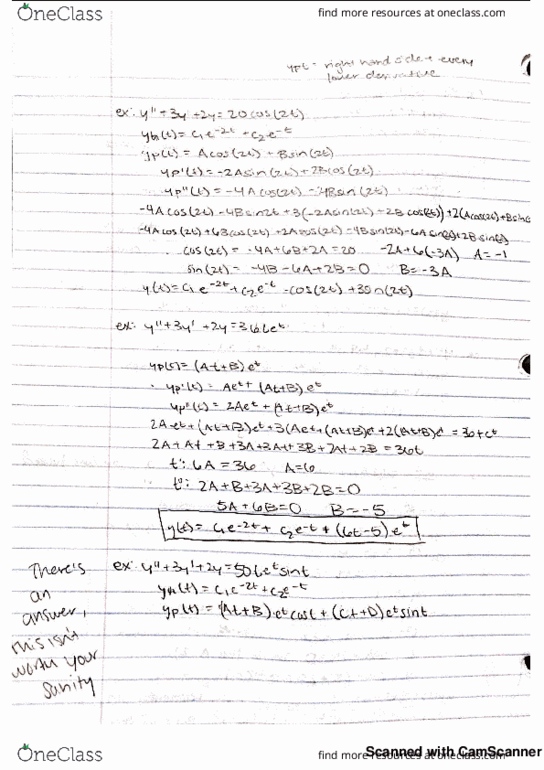 OneClass
find more resources at oneclass.com
ypt - right hand side + every
lower derivative
ex: y"+3y'+2y=20cos(2t)
yh(t)=c1e-2t+c2e-t
yp(t)=Acos(2t)+Bsin(2t)
yp'(t)=-2Asin(2t)+2Bcos(2t)
yp"(t)=-4Acos(2t)-4Bsin(2t)
-4Acos(2t)-4Bsin2t+3(-2Asin(2t)+2Bcos(2t))+2(Acos(2t)+Bsin
-4Acos(2t)+6Bcos(2t)+2Acos(2t)-4Bsin(2t)-6Asin(2t)+2Bsin(2t)
cos(2t)=-4A+6B+2A=20 -2A+6(-3A) A=-1
sin(2t)=-4B-6A+2B=0 B=-3A
y(t)=c1e-2t+c2e-t-cos(2t)+3sin(2t)
ex: y"+3y'+2y=36tet
yp(t)=(At+B)et
yp'(t)=Aet+(At+B)et
yp"(t)=2Aet+(At+B)et
2Aet+(At+B)et+3(Aet+(At+B)et+2((At+B)et=36tet
2A+At+B+3A+3At+3B+2At+2B=36t
t': 6A=36 A=6
t0: 2A+B+3A+3B+2B=0
5A+6B=0 B=-5
y(t)=c1e-2t+c2e-t+(6t-5)et
There's
an
answer,
this isn't
worth your
sanity
ex: y"+3y'+2y=50tetsint
yh(t)=c1e-2t+c2e-t
yp(t)=(At+B)etcost+(Ct+D)etsint
OneClass
find more resources at oneclass.com
Scanned with CamScanner